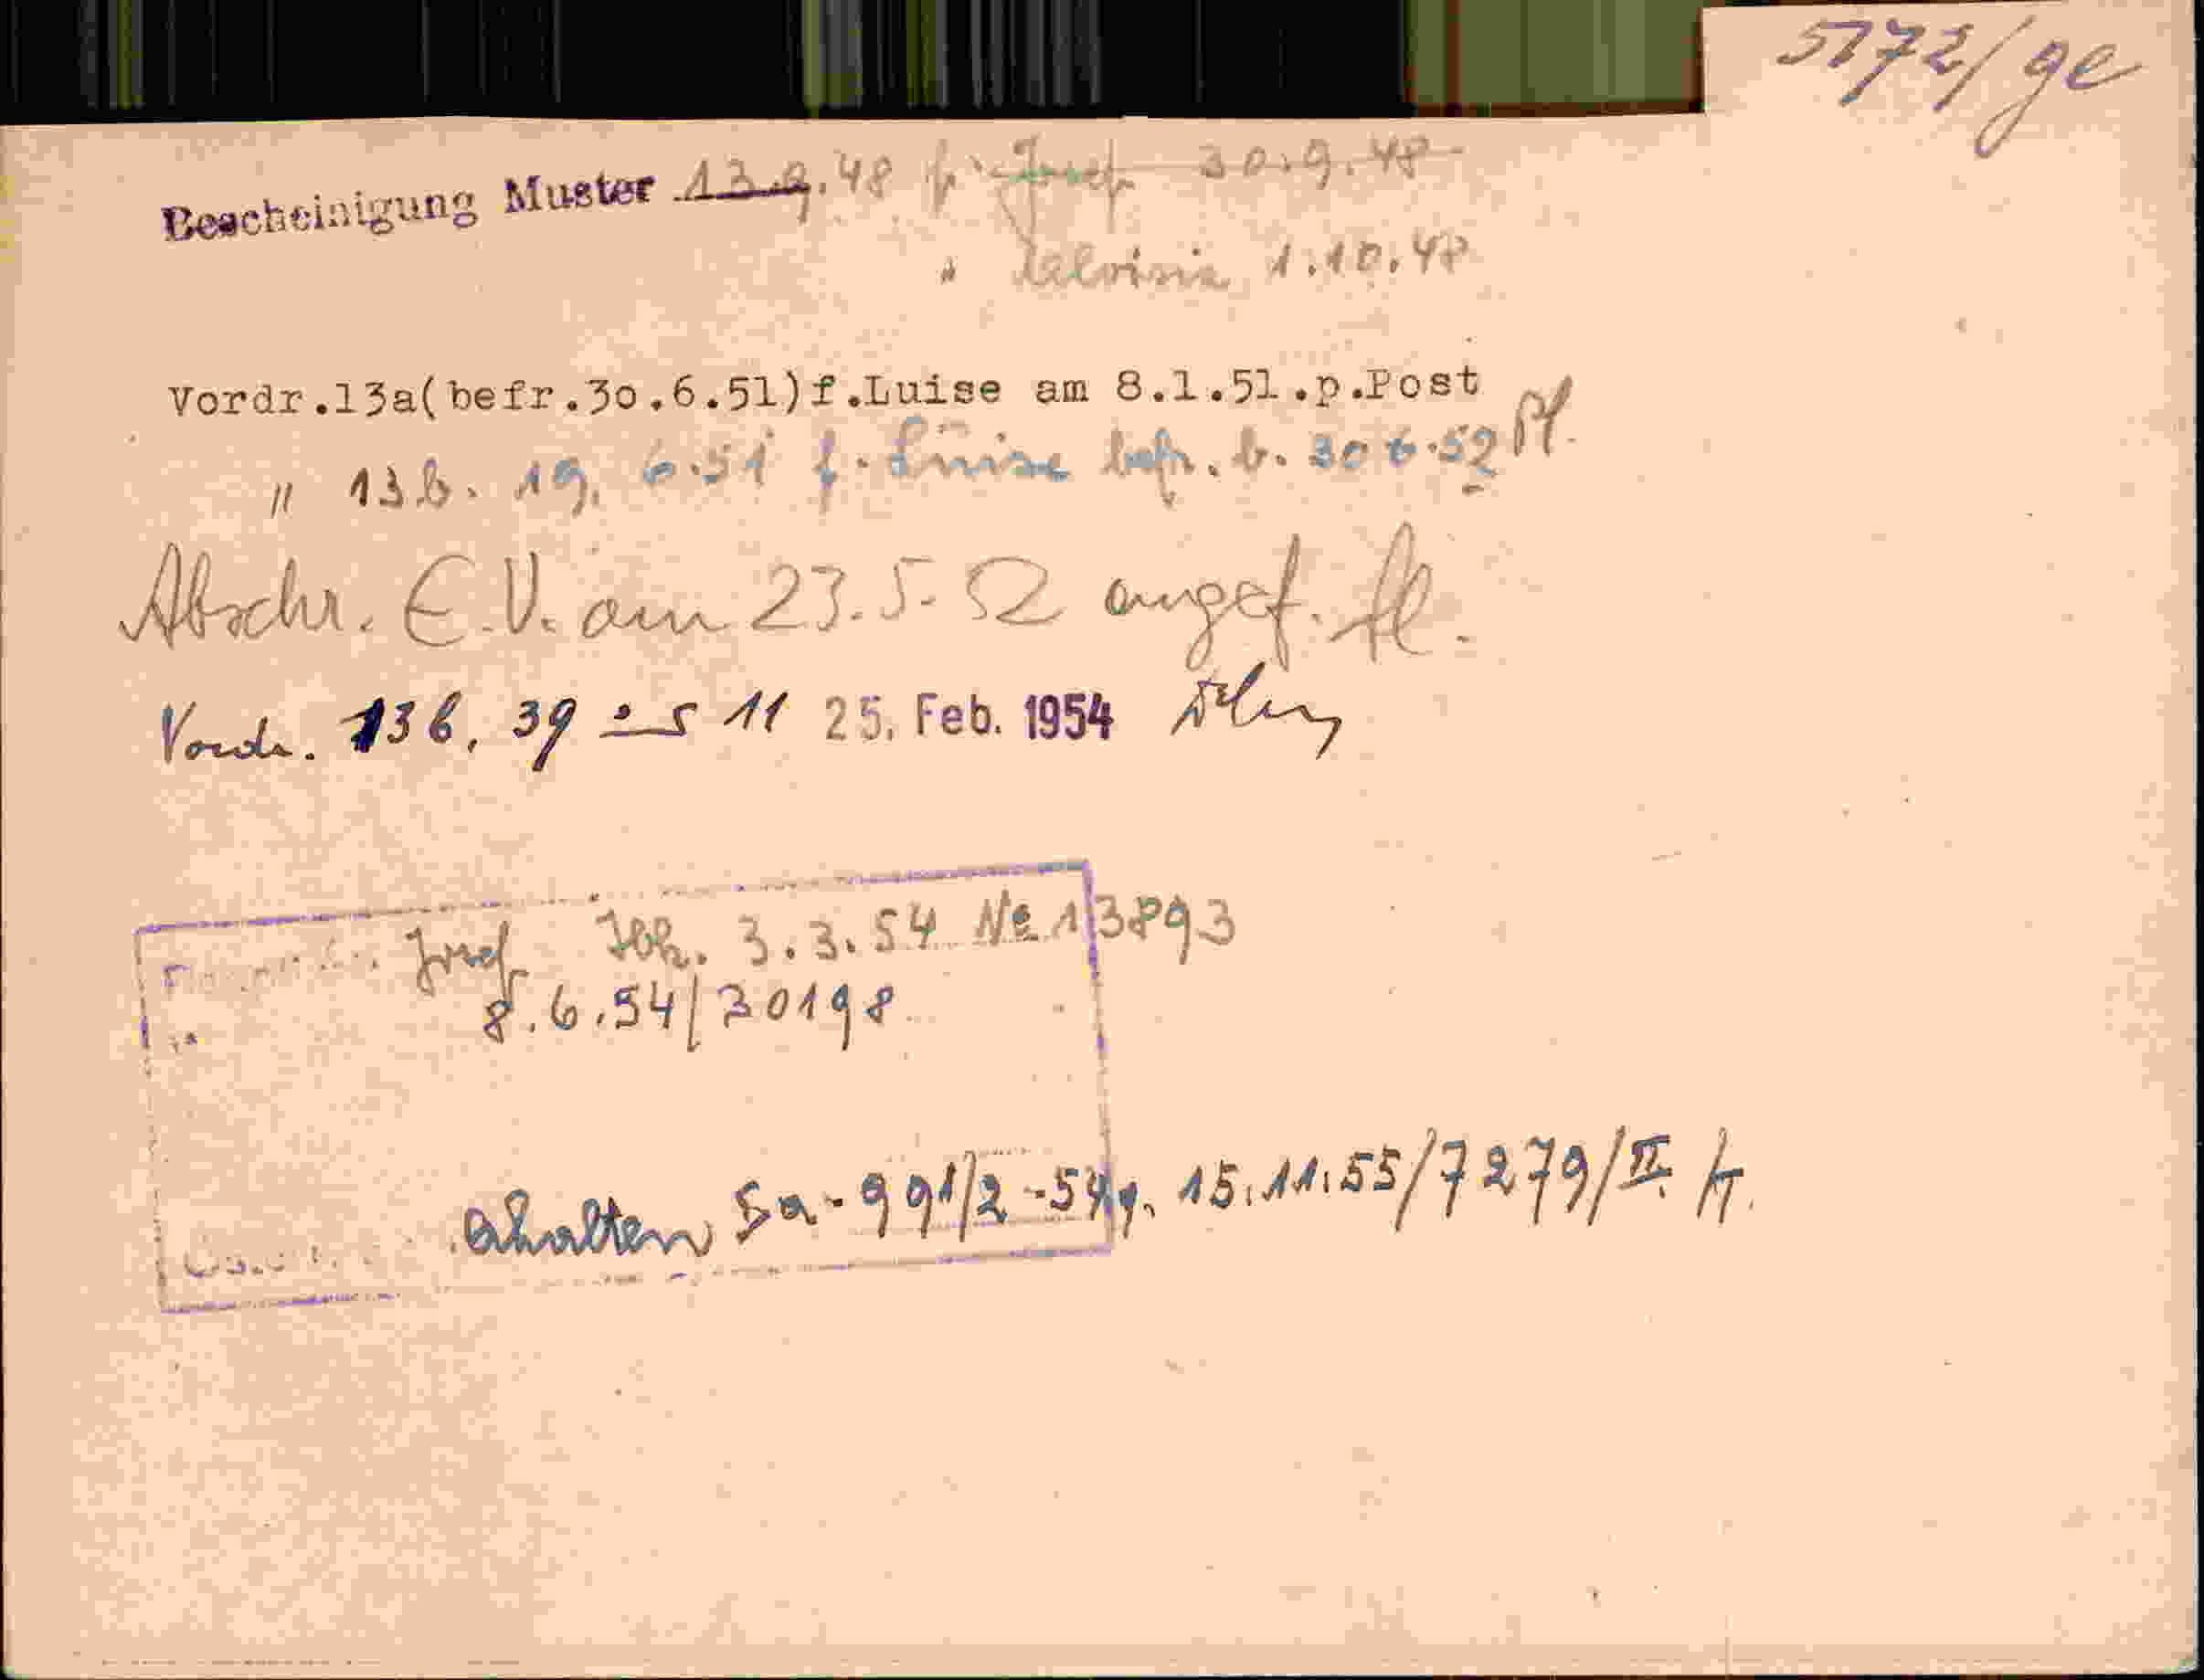 5172/ge
Bescheinigung Muster 13.9.48 f. Josef 30.9.48
" 1.10.48
Vordr.13a(befr.30.6.51)f.Luise am 8.1.51.p.Post
" 13b. 19. 6.51 f. Luise befr. b. 30 6.52 Pf.
Abschr. E.V. am 23.5.52 angef. fl.
Vordr. 13b, 39 11 25. Feb. 1954
Josef Joh. 3.3.54 № 13893
8.6.54/20198
erhalten Sa-991/2-54g. 15.11.55/7279/II